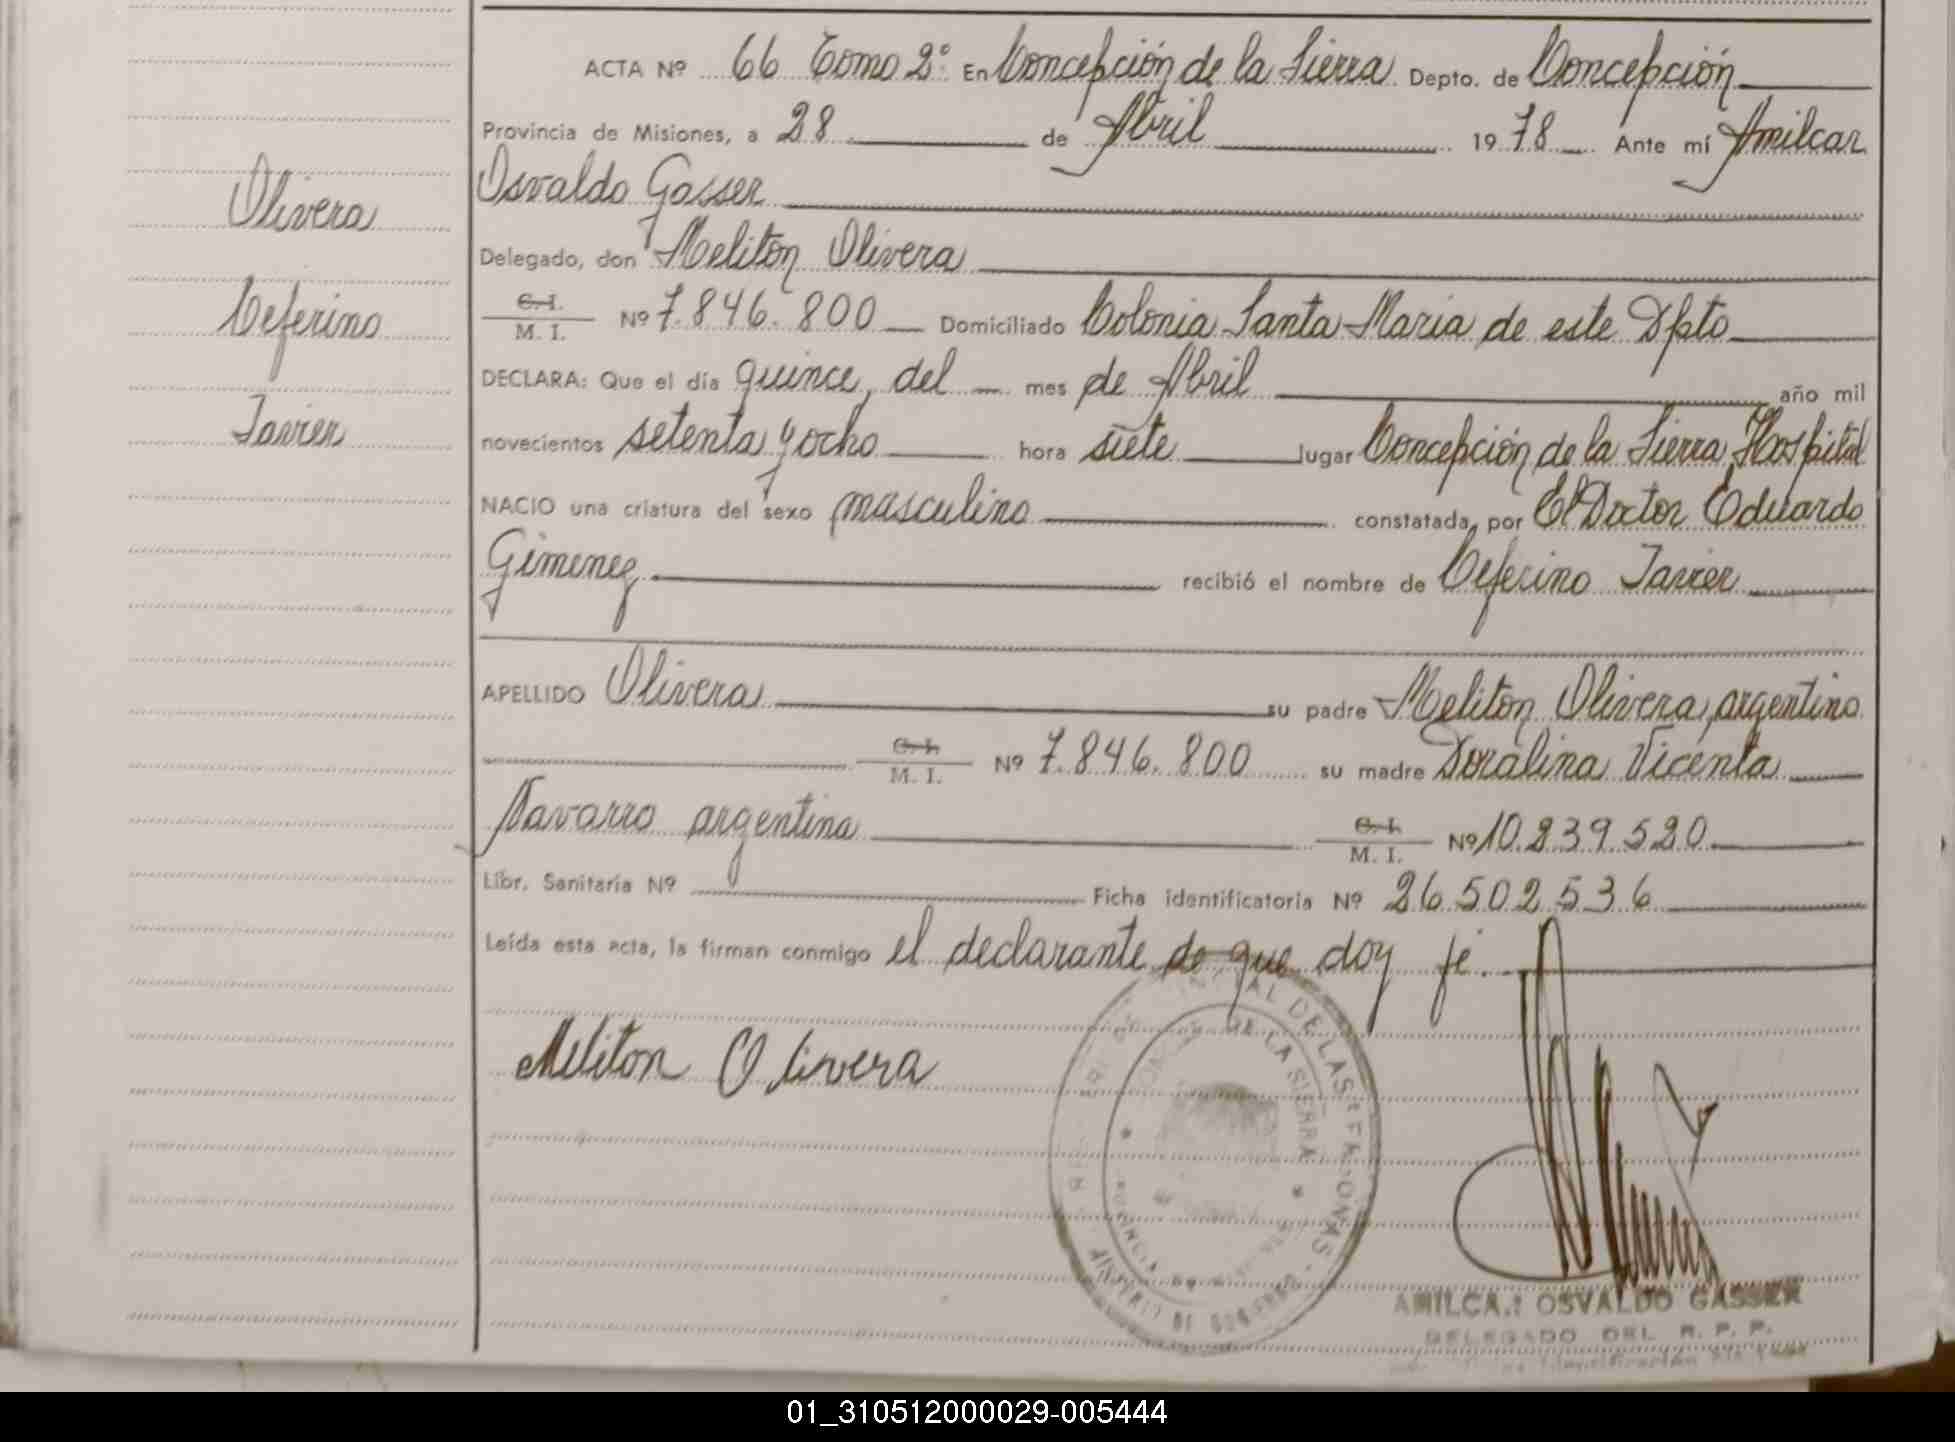 ACTA Nº 66 Tomo 2º En Concepción de la Sierra Depto. de Concepción
Provincia de Misiones, a 28 de Abril 1978 Ante mí Amilcar
Osvaldo Gasser
Olivera
Delegado, don Meliton Olivera
C. I.
M. I. Nº 7.846.800 Domiciliado Colonia Santa Maria de este Dpto
Ceferino
DECLARA: Que el día quince, del mes de Abril año mil
Javier
novecientos setenta y ocho hora siete lugar Concepción de la Sierra, Hospital
NACIO una criatura del sexo masculino constatada por El Doctor Eduardo
Gimenez recibió el nombre de Ceferino Javier
APELLIDO Olivera su padre Meliton Olivera, argentino
C. I.
M. I. Nº 7.846.800 su madre Doralina Vicenta
Navarro argentina C. I.
M. I. Nº 10.239.520
Libr. Sanitaria Nº Ficha identificatoria Nº 26.502.536
Leída esta acta, la firman conmigo el declarante de que doy fé.
Meliton Olivera
DE LAS PERSONAS
DE LA SIERRA
MINISTERIO DE GOBIERNO
AMILCAR OSVALDO GASSER
DELEGADO DEL R. P. P.
01_310512000029-005444